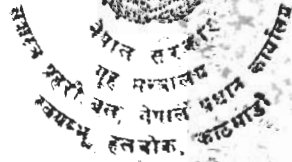 नेपाल सरकार
गृह मन्त्रालय
सशस्त्र प्रहरी बल, नेपाल प्रधान कार्यालय
स्वयम्भू हलचोक, काठमाडौं